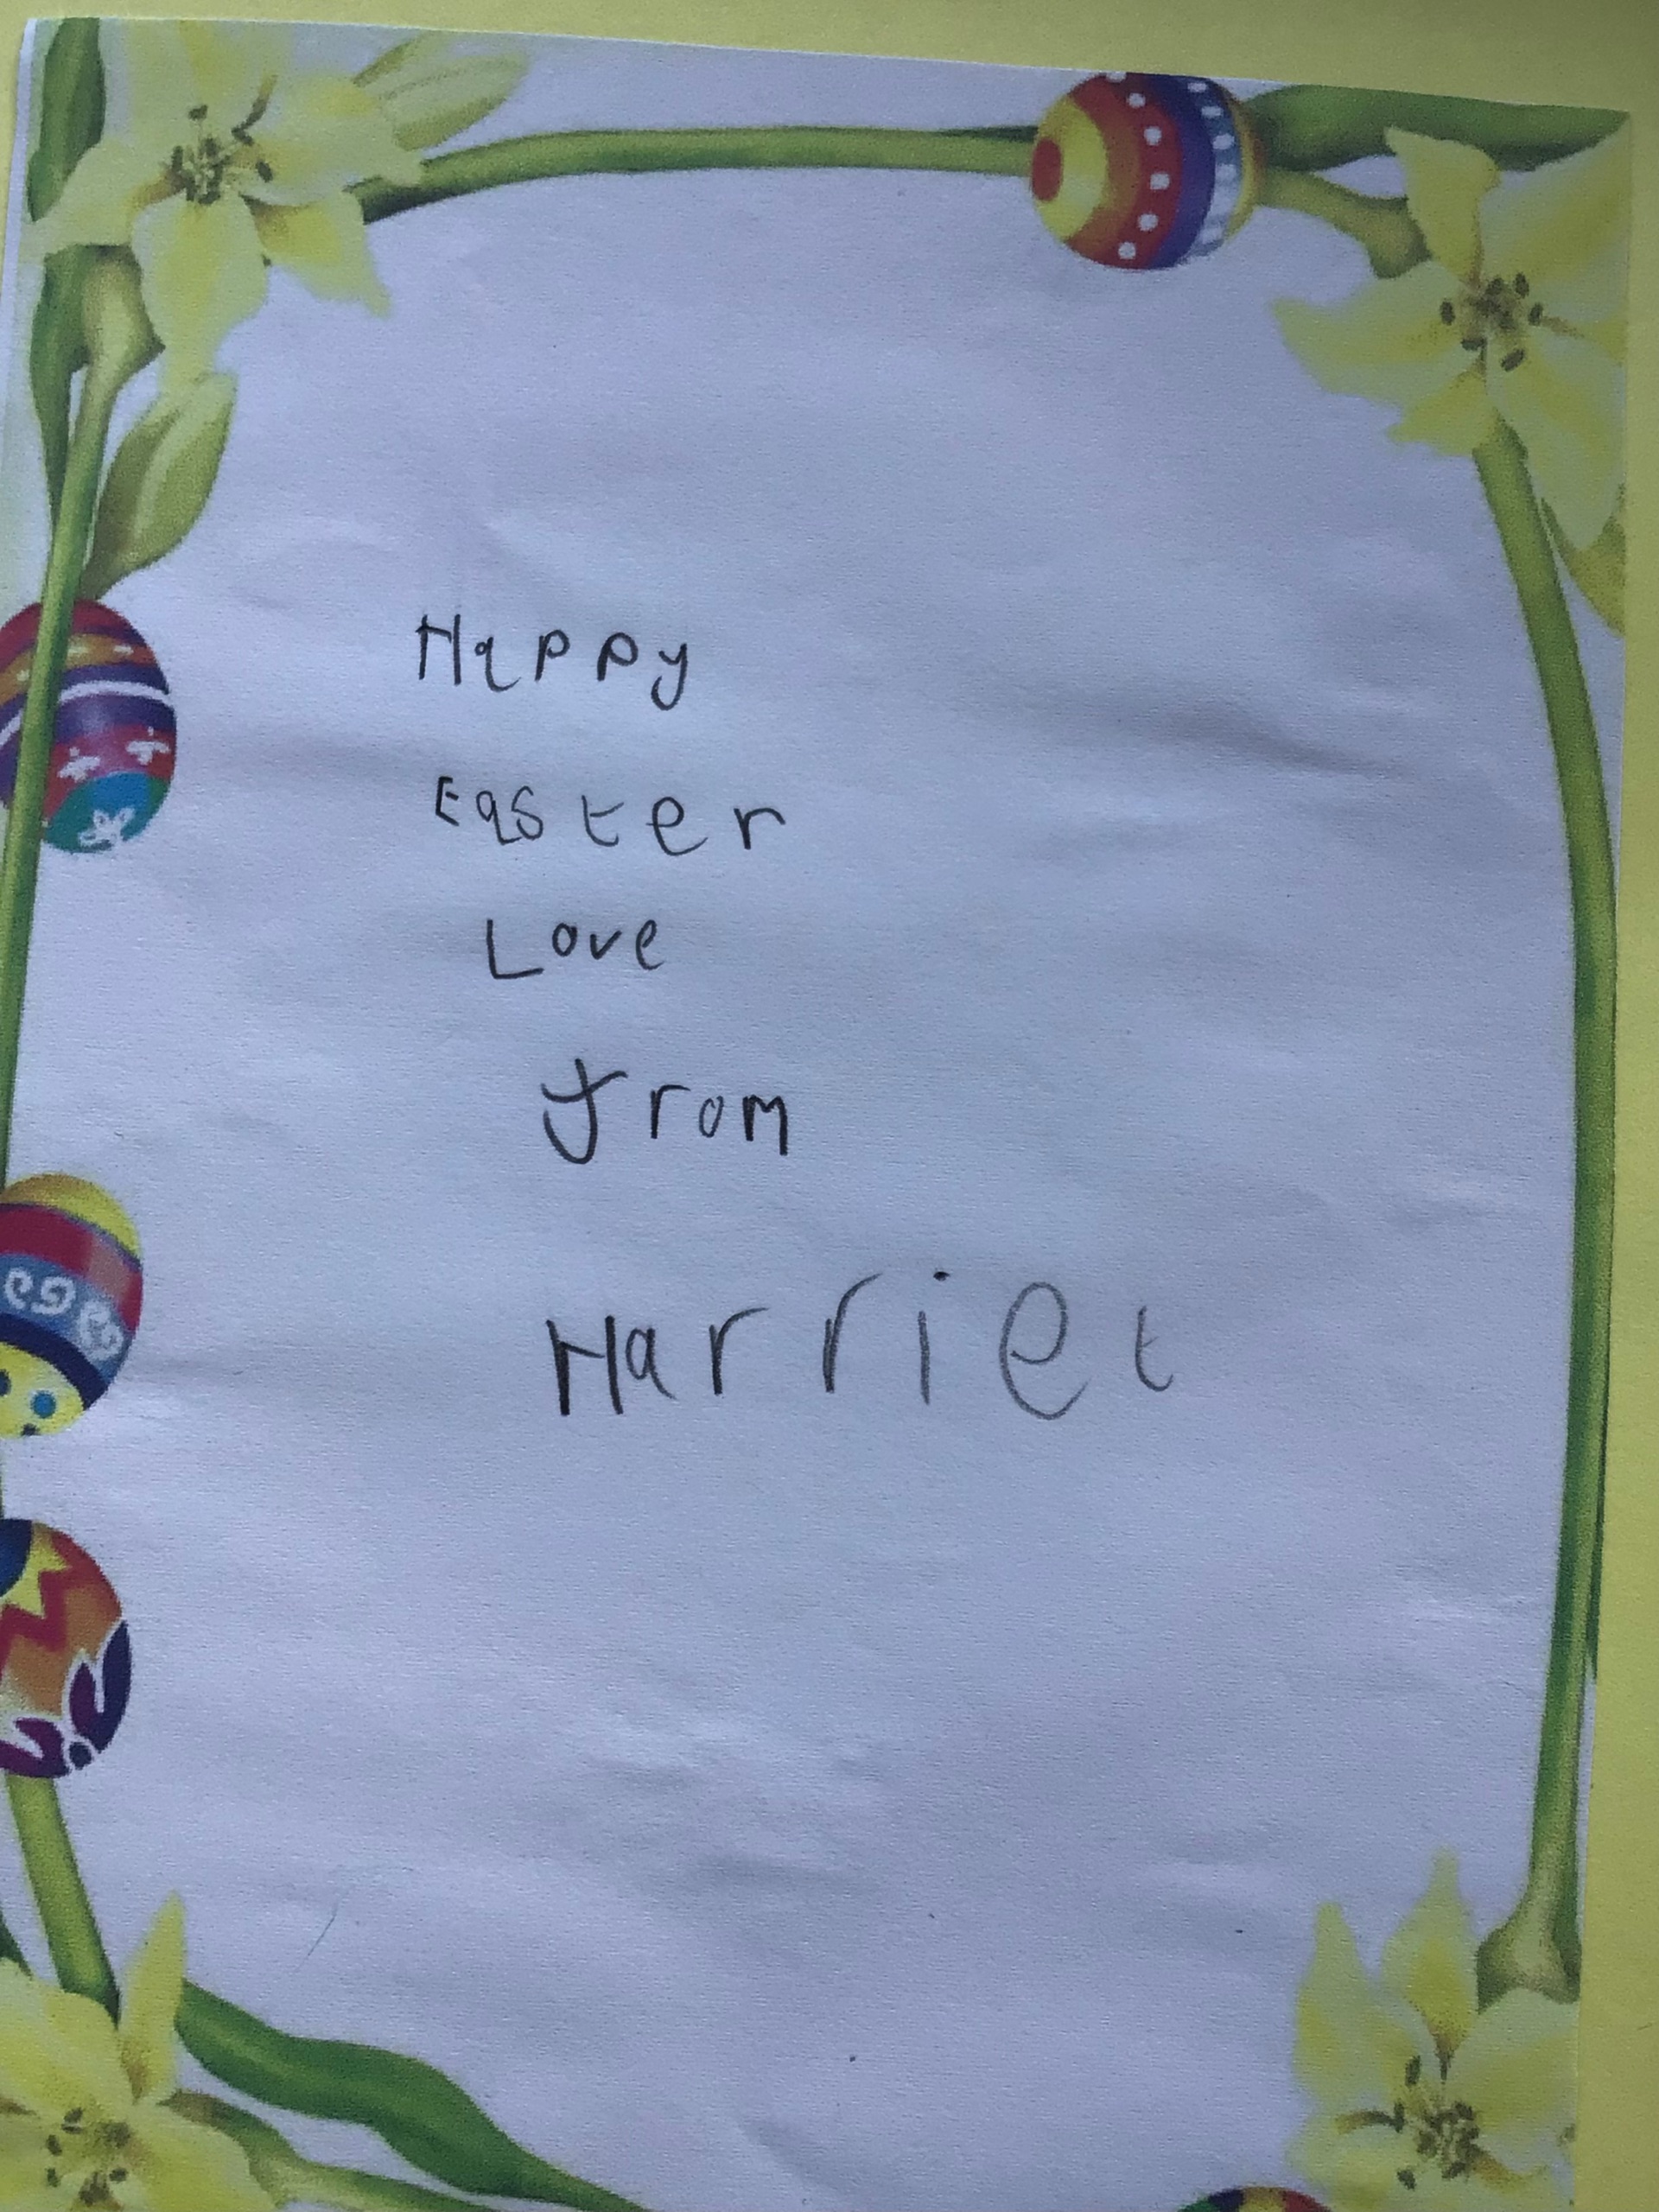 Happy
Easter
Love
from
Harriet